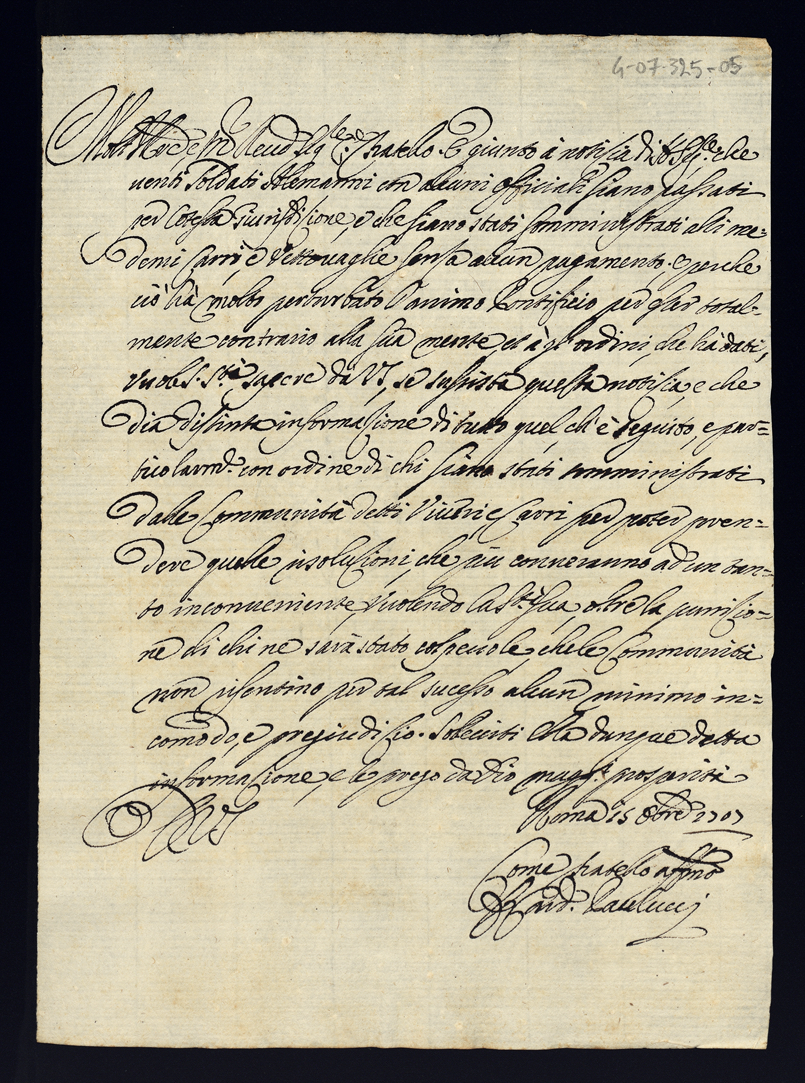 4-07-325-05
Molt Ill.re e m.to Reud. Sig.re come fratello. È giunto à notitia di N. Sig.re che
uenti Soldati Alemanni con alcuni Officiali siano passati
per cotesta Giurisditione, e che siano stati somministrati alli me=
demi Carri e Vettouaglie senza alcun pagamento. e perche
ciò hà molto perturbato l'animo Pontificio per esser total=
mente contrario alla sua mente, et à gl'ordini, che hà dati,
Vuole S. S.tà sapere da VS, se sussista questa notitia, e che
dia distinta informatione di tutto quel ch'è seguito, e par=
ticolarm.te con ordine di chi siano stati somministrati
dalle Communità detti Viueri e Carri per poter pren=
dere quelle risolutioni, che più conueranno ad un tan=
to inconueniente, Volendo la S.tà Sua, oltre la punitio=
ne di chi ne sarà stato colpeuole, che le Communità
non risentino per tal successo alcun minimo in=
comodo, e pregiuditio. Solleciti Ella dunque detta
informatione, e le prego da Dio magg.re prosperità
Roma 15 8bre 1707
D VS
Come fratello aff.mo
F. Card. Paulucci